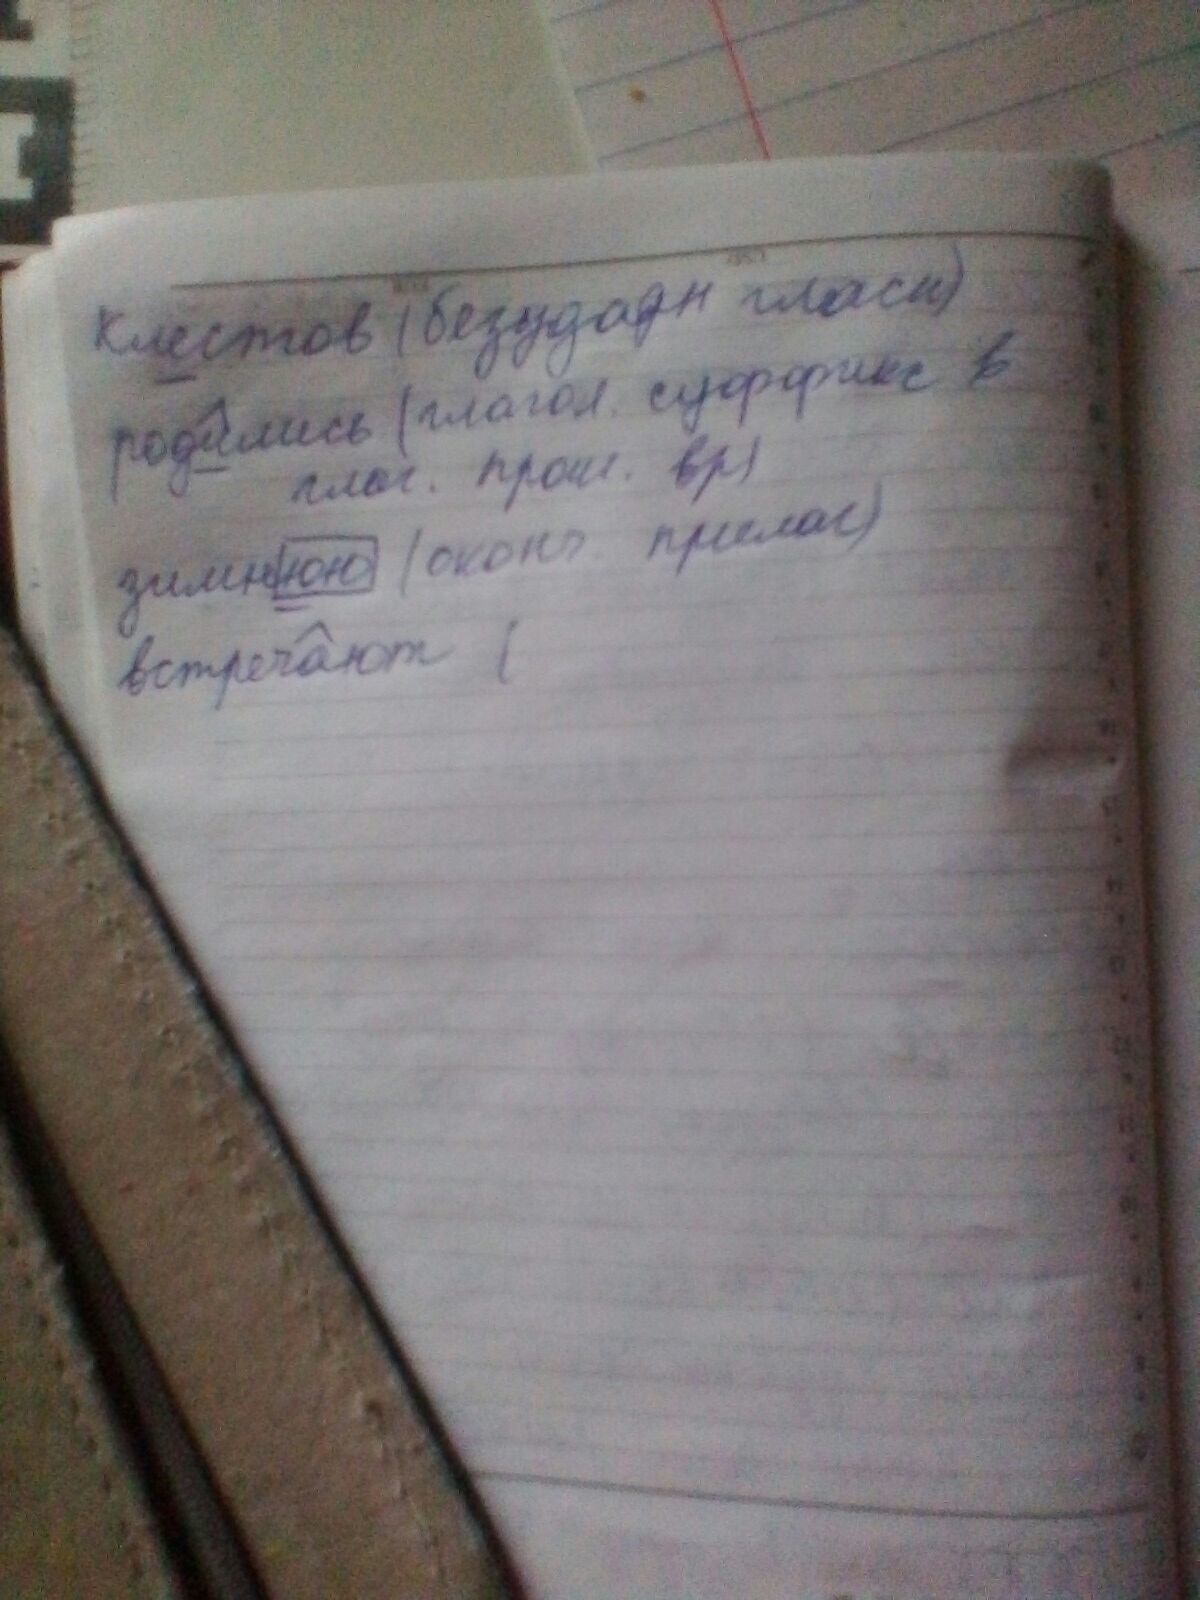 клестов (безударн гласн)
родились (глагол. суффикс в
глаг. прош. вр)
зимнюю (оконч. прилаг)
встречают (